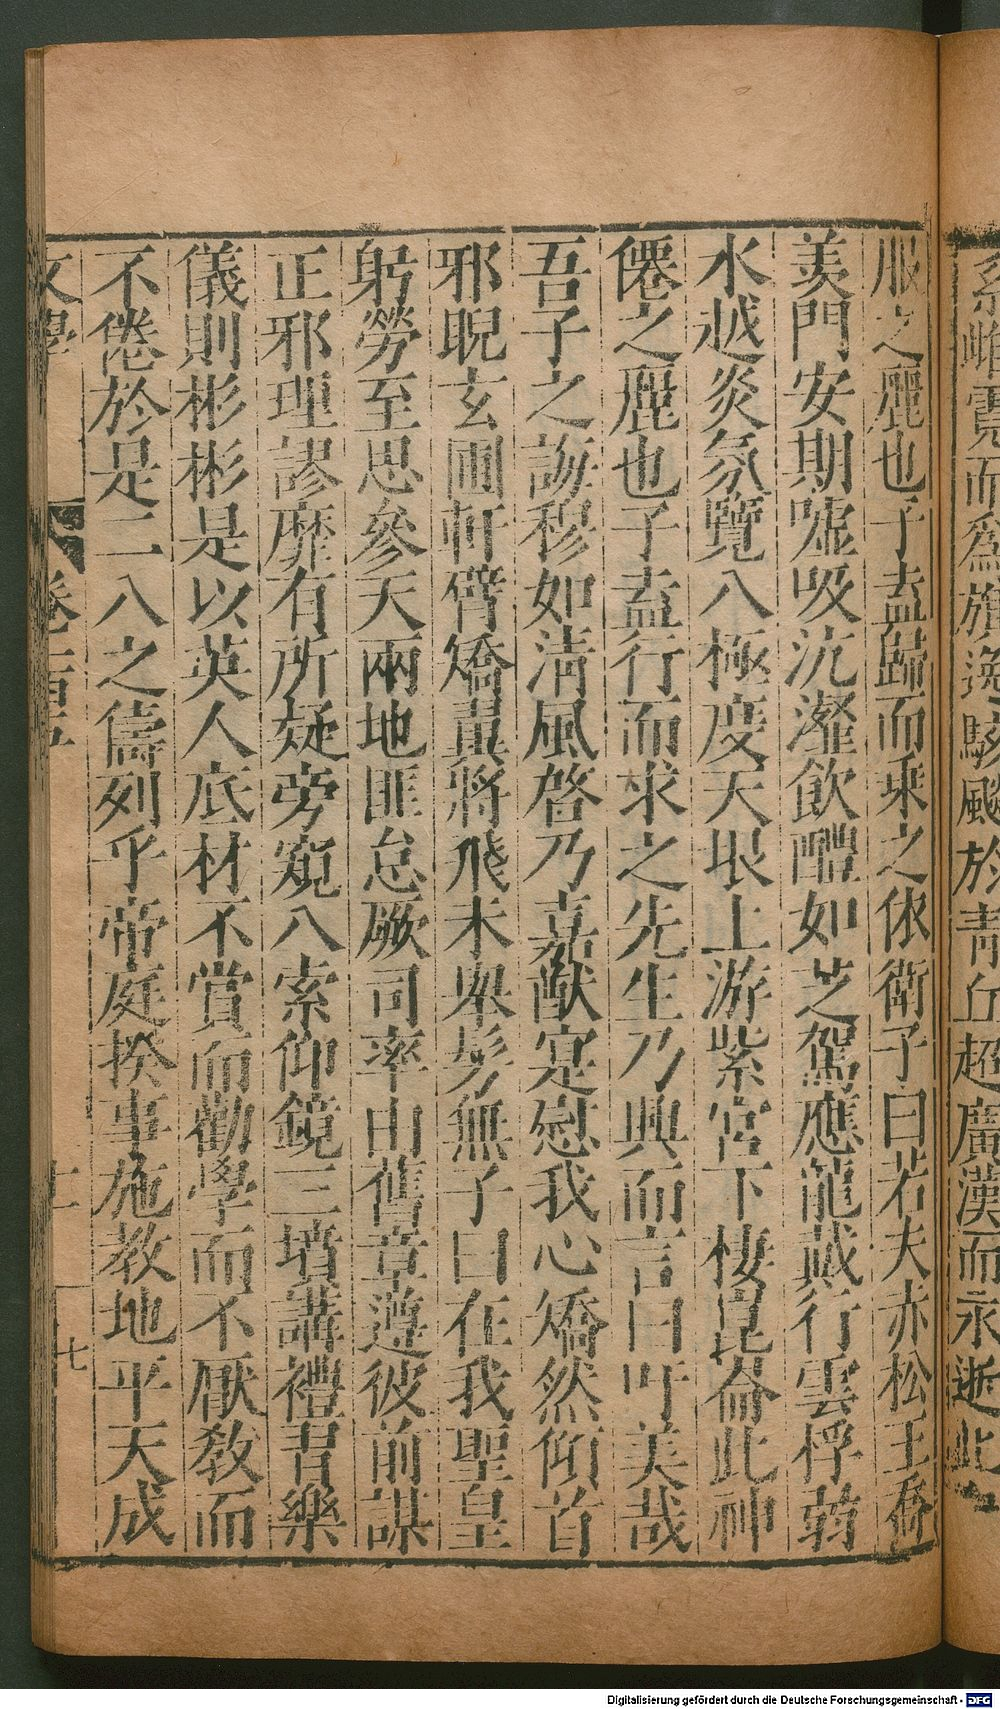 系雌霓而爲旗逸駭飈於青丘超廣漢而永逝此
服之麗也子盍歸而乘之依衛子曰若夫赤松王喬
羨門安期噓吸沆瀣飲醴如芝駕應龍戴行雲桴弱
水越炎氛覽八極度天垠上游紫宮下棲崑崙此神
僊之麗也子盍行而求之先生乃興而言曰吁美哉
吾子之誨穆如清風啓乃嘉猷寔慰我心矯然仰首
邪睨玄圃軒臂矯翼將飛未舉髣無子曰在我聖皇
躬勞至思參天兩地匪怠厥司率由舊章遵彼前謀
正邪理謬靡有所疑旁窺八索仰鏡三墳講禮習樂
儀則彬彬是以英人底材不賞而勸學而不厭教而
不倦於是二八之儔列乎帝庭揆事施教地平天成
文學
卷二百五
十七
Digitalisierung gefördert durch die Deutsche Forschungsgemeinschaft - DFG